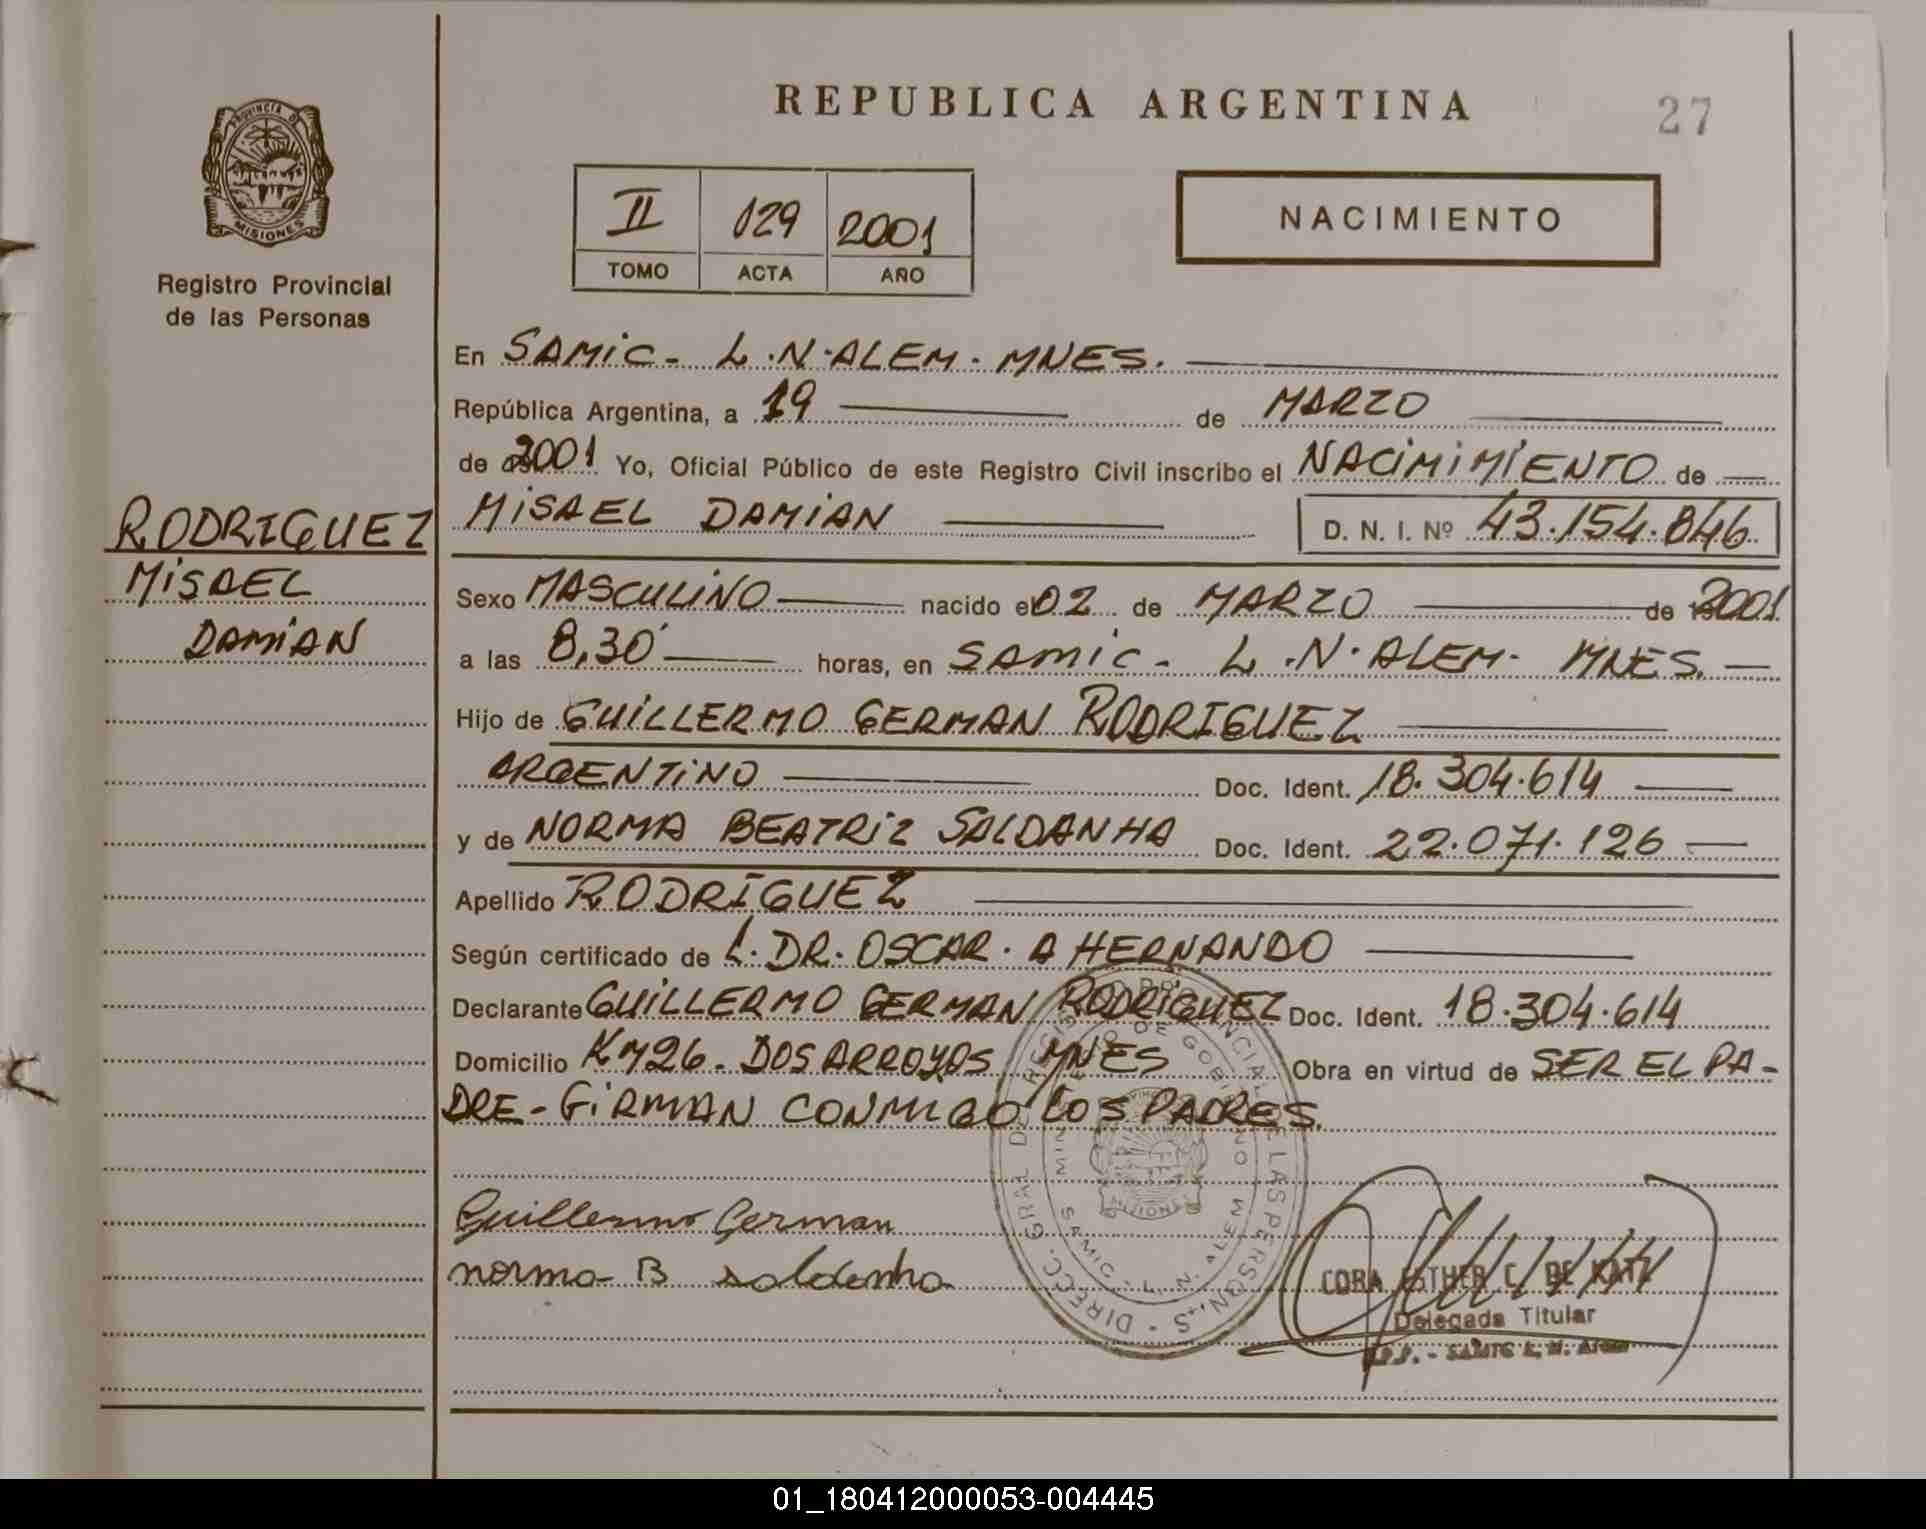 REPUBLICA ARGENTINA
27
PROVINCIA DE
MISIONES
Registro Provincial
de las Personas
II 129 2001
TOMO ACTA AÑO
NACIMIENTO
En SAMIC- L.N.ALEM. MNES.
República Argentina, a 19 de MARZO
de 2001 Yo, Oficial Público de este Registro Civil inscribo el NACIMIMIENTO de
MISAEL DAMIAN D. N. I. Nº 43.154.846
RODRIGUEZ
MISAEL
DAMIAN
Sexo MASCULINO nacido el 02 de MARZO de 2001
a las 8,30 horas, en SAMIC- L.N.ALEM- MNES.
Hijo de GUILLERMO GERMAN RODRIGUEZ
ARGENTINO Doc. Ident. 18.304.614
y de NORMA BEATRIZ SALDANHA Doc. Ident. 22.071.126
Apellido RODRIGUEZ
Según certificado de L. DR. OSCAR. A HERNANDO
Declarante GUILLERMO GERMAN RODRIGUEZ Doc. Ident. 18.304.614
Domicilio KM26. DOS ARROYOS MNES Obra en virtud de SER EL PA-
DRE- GIRMAN CONMIGO LOS PADRES.
Guillermo German
norma B saldanha
DIRECC. GRAL DE REGISTRO PROVINCIAL DE LAS PERSONAS
MINISTERIO DE GOBIERNO
SAMIC - L. N. ALEM
CORA ESTHER C. DE KATZ
Delegada Titular
R.P.P. - SAMIC L. N. Alem
01_180412000053-004445